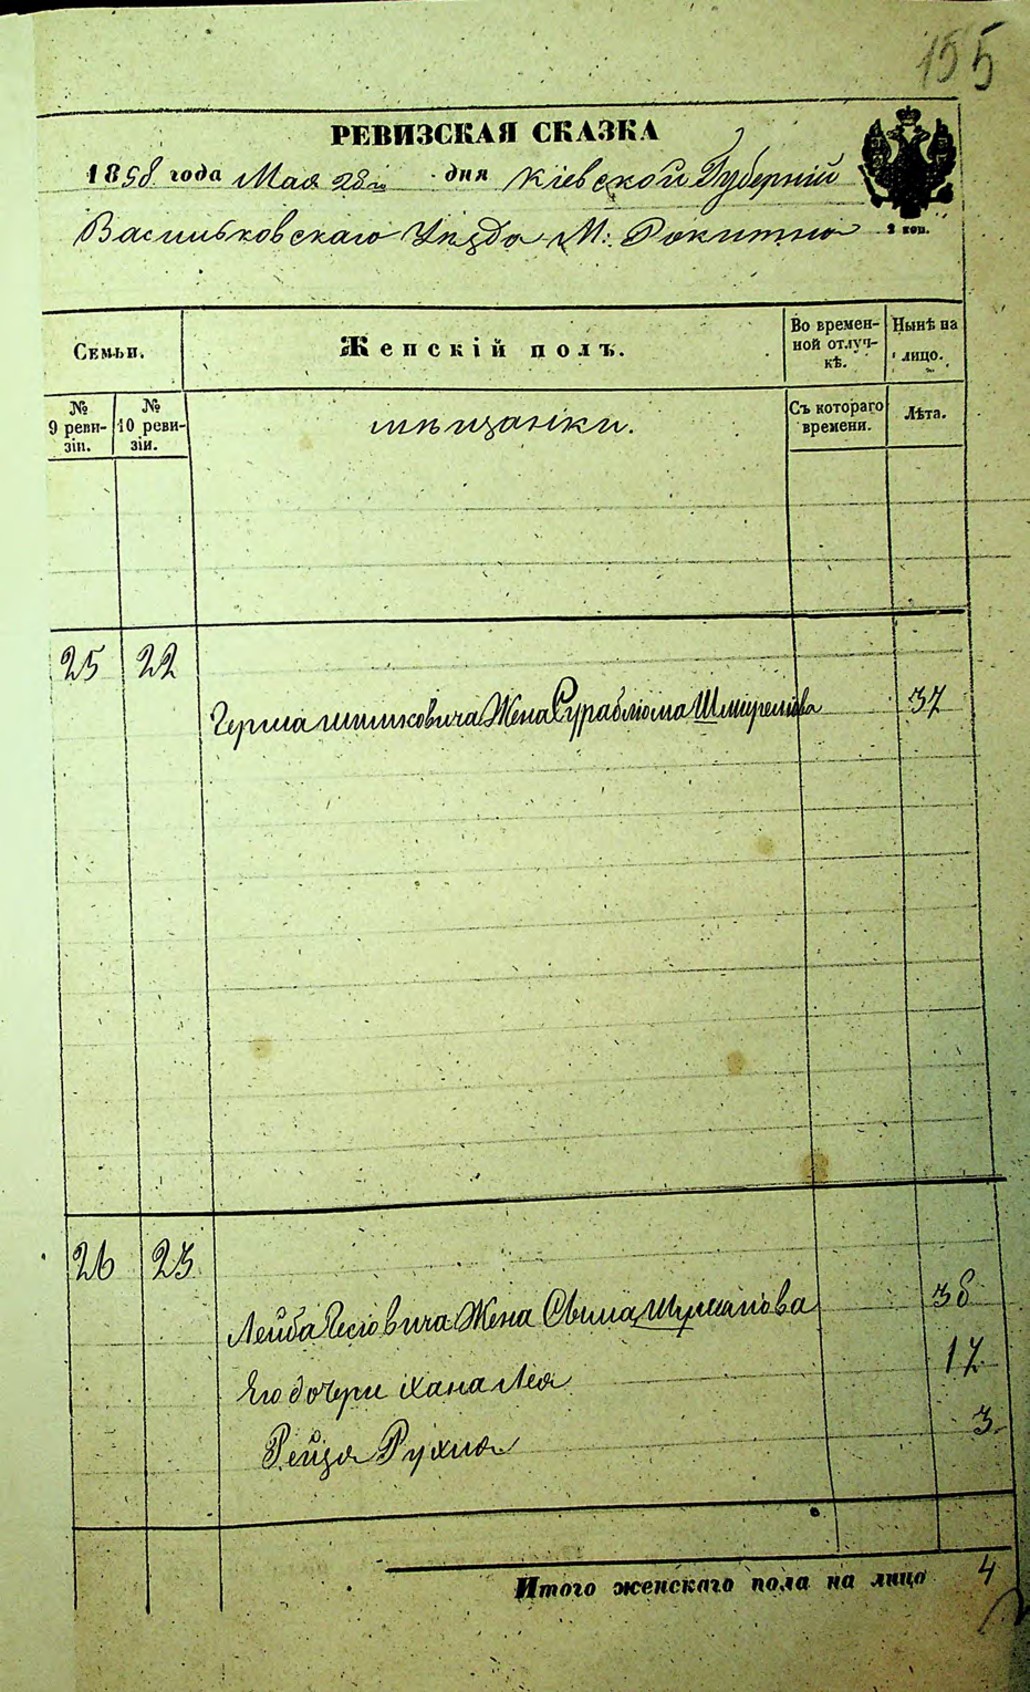 155
РЕВИЗСКАЯ СКАЗКА
1858 года Мая 28го дня Кіевской Губерніи
Васильковскаго Уѣзда М: Рокитно
2 коп.
Семьи.
Женскій полъ.
Во времен-
ной отлуч-
кѣ.
Нынѣ на
лицо.
№
9 реви-
зіи.
№
10 реви-
зіи.
мѣщанки.
Съ котораго
времени.
Лѣта.
25 22
Жена Сураблюма 37
26 23
Лейба Жена 38
Его дочери Хана Лея 17
Рейзя Рухля 3
Итого женскаго пола на лицо 4